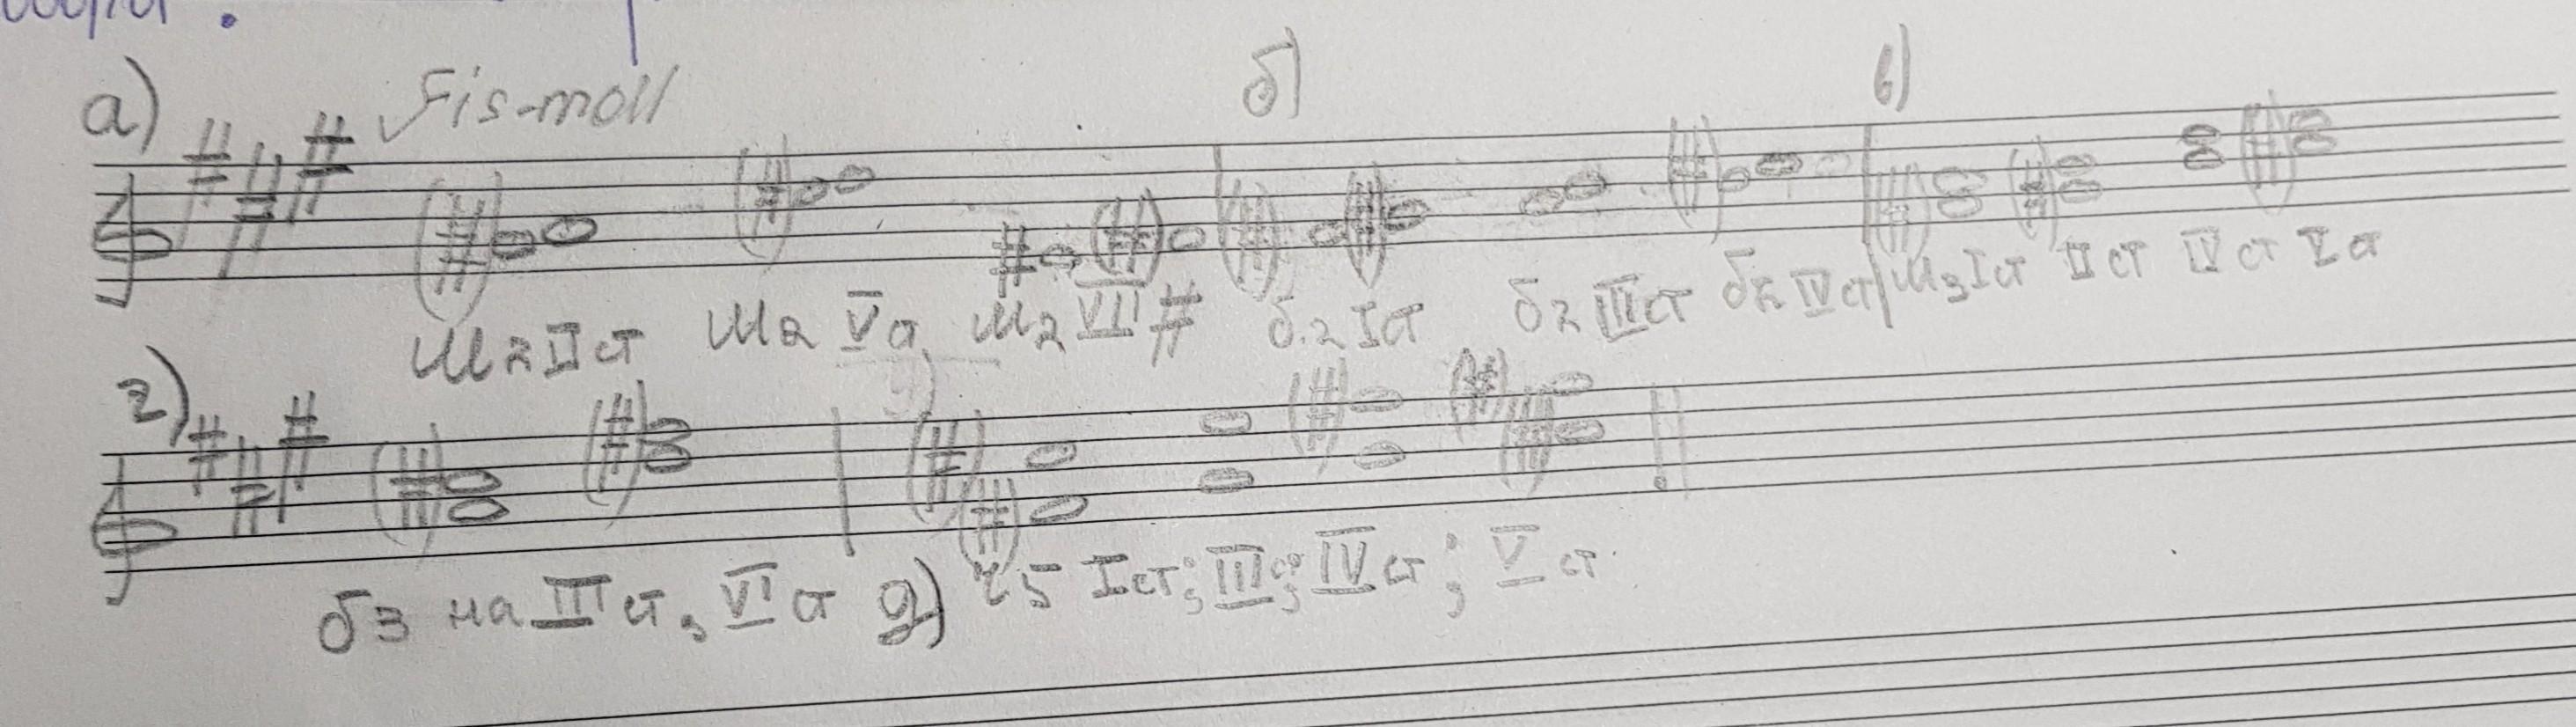 а) Fis-moll б) в)
м2 II ст м2 V ст м2 VII# б.2 I ст б2 III ст б2 IV ст м3 I ст II ст IV ст V ст
г)
б3 на III ст, VI ст д) ч5 I ст; III; IV ст; V ст.